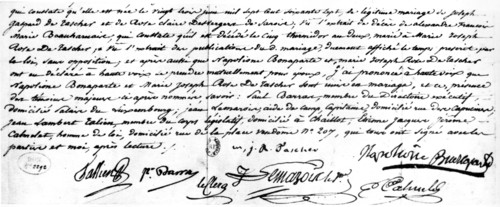 qui constate qu'elle est née le vingt trois juin mil sept cent soixante sept, de légitime mariage de Joseph
Gaspard de Tascher et de Rose claire Desvergers de Sanois, Vu l'extrait de décès de alexandre françois
Marie Beauharnais, qui constate qu'il est décédé le cinq thermidor an deux, marié à Marie Joseph
Rose De Tascher, Vu l'extrait des publications du d. mariage, duement affiché le temps prescrit par
la loi, sans opposition, et après aussi que Napolione Bonaparte et, marie Joseph Rose De Tascher
ont eu déclaré à haute voix se prendre mutuellement pour époux, j'ai prononcé à haute voix que
Napolione Bonaparte et Marie Joseph Rose De Tascher sont unis en mariage, et ce, en présence
des témoins majeurs ci après nommés savoir Paul Barras membre du directoire exécutif
Domicilié palais du Luxembourg, Jean Lemarois aide de camp, Capitaine, domicilié rue des Capucines
Jean Lambert Tallien, membre du corps législatif domicilié à Chaillot, Etienne Jacques Jérôme
Calmelet, homme de loi, domicilié rue de la place vendôme N.º 207, qui tous ont signé avec les
parties et moi, après lecture
m. j. R. Tascher
Napolione Buonaparte
Tallien P. Barras
Leclercq J. Lemarois
Calmelet